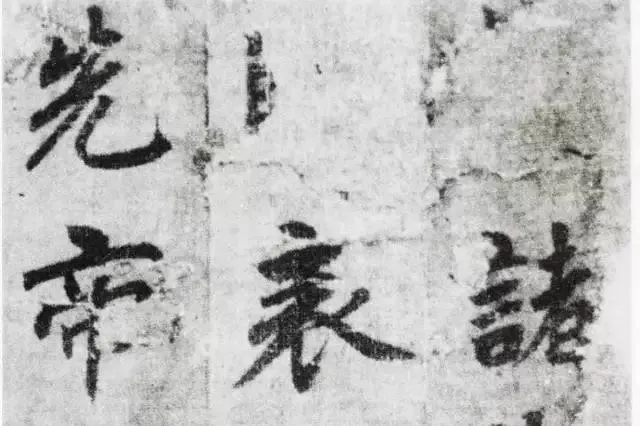 諸
表
先帝